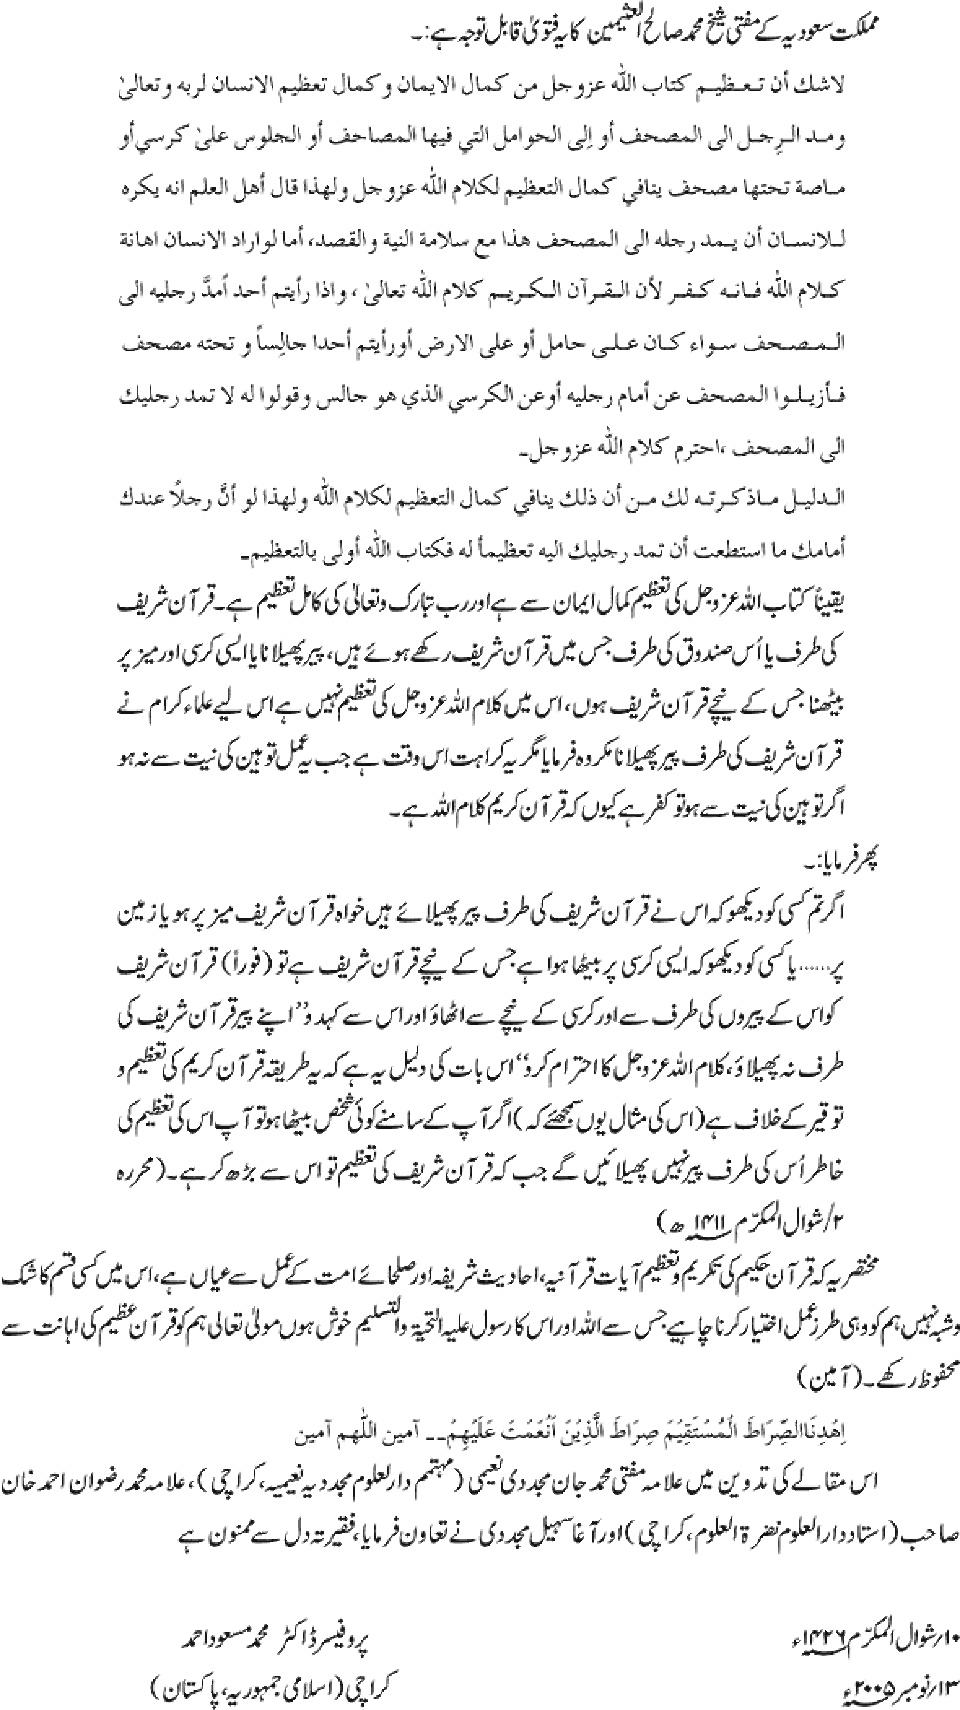 مملکت سعودیہ کے مفتی شیخ محمد صالح العثیمین کا یہ فتویٰ قابل توجہ ہے:۔
لاشك أن تعظيم كتاب الله عزوجل من كمال الايمان وكمال تعظيم الانسان لربه وتعالىٰ
ومد الرِجل الى المصحف أو اِلى الحوامل التي فيها المصاحف أو الجلوس علىٰ كرسي أو
ماصة تحتها مصحف ينافي كمال التعظيم لكلام الله عزوجل ولهذا قال أهل العلم انه يكره
للانسان أن يمد رجله الى المصحف هذا مع سلامة النية والقصد، أما لواراد الانسان اهانة
كلام الله فانه كفر لأن القرآن الكريم كلام الله تعالىٰ، واذا رأيتم أحد أمدَّ رجليه الى
المصحف سواء كان على حامل أو على الارض أورأيتم أحدا جالِساً و تحته مصحف
فأزيلوا المصحف عن أمام رجليه أوعن الكرسي الذي هو جالس وقولوا له لا تمد رجليك
الى المصحف ،احترم كلام الله عزوجل۔
الدليل ماذكرته لك من أن ذلك ينافي كمال التعظيم لكلام الله ولهذا لو أنَّ رجلاً عندك
أمامك ما استطعت أن تمد رجليك اليه تعظيمأ له فكتاب الله أولى بالتعظيم۔
یقیناً کتاب اللہ عزوجل کی تعظیم کمال ایمان سے ہے اور رب تبارک وتعالیٰ کی کامل تعظیم ہے۔ قرآن شریف
کی طرف یا اُس صندوق کی طرف جس میں قرآن شریف رکھے ہوئے ہیں، پیر پھیلانا یا ایسی کرسی اور میز پر
بیٹھنا جس کے نیچے قرآن شریف ہوں، اس میں کلام اللہ عزوجل کی تعظیم نہیں ہے اس لیے علماء کرام نے
قرآن شریف کی طرف پیر پھیلانا مکروہ فرمایا مگر یہ کراہت اس وقت ہے جب یہ عمل توہین کی نیت سے نہ ہو
اگر توہین کی نیت سے ہو تو کفر ہے کیوں کہ قرآن کریم کلام اللہ ہے۔
پھر فرمایا:۔
اگر تم کسی کو دیکھو کہ اس نے قرآن شریف کی طرف پیر پھیلائے ہیں خواہ قرآن شریف میز پر ہو یا زمین
پر......یا کسی کو دیکھو کہ ایسی کرسی پر بیٹھا ہوا ہے جس کے نیچے قرآن شریف ہے تو (فوراً) قرآن شریف
کو اس کے پیروں کی طرف سے اور کرسی کے نیچے سے اٹھاؤ اور اس سے کہدو ’’اپنے پیر قرآن شریف کی
طرف نہ پھیلاؤ، کلام اللہ عزوجل کا احترام کرو‘‘ اس بات کی دلیل یہ ہے کہ یہ طریقہ قرآن کریم کی تعظیم و
توقیر کے خلاف ہے (اس کی مثال یوں سمجھئے کہ) اگر آپ کے سامنے کوئی شخص بیٹھا ہو تو آپ اس کی تعظیم کی
خاطر اُس کی طرف پیر نہیں پھیلائیں گے جب کہ قرآن شریف کی تعظیم تو اس سے بڑھ کر ہے۔ (محررہ
۲/شوال المکرّم ۱۴۱۱ھ)
مختصر یہ کہ قرآن حکیم کی تکریم و تعظیم آیات قرآنیہ، احادیث شریفہ اور صلحائے امت کے عمل سے عیاں ہے، اس میں کسی قسم کا شک
و شبہ نہیں ہم کو وہی طرز عمل اختیار کرنا چاہیے جس سے اللہ اور اس کا رسول علیہ التحیۃ والتسلیم خوش ہوں مولیٰ تعالی ہم کو قرآن عظیم کی اہانت سے
محفوظ رکھے۔ (آمین)
اِهْدِنَاالصِّرَاطَ الْمُسْتَقِيْمَ صِرَاطَ الَّذِيْنَ اَنْعَمْتَ عَلَيْهِمْ۔۔ آمين اللّهم آمين
اس مقالے کی تدوین میں علامہ مفتی محمد جان مجددی نعیمی (مہتمم دارلعلوم مجددیہ نعیمیہ، کراچی)، علامہ محمد رضوان احمد خان
صاحب (استاد دارالعلوم نضرۃ العلوم، کراچی) اور آغا سہیل مجددی نے تعاون فرمایا، فقیر تہ دل سے ممنون ہے
۱۰؍شوال المکرّم ۱۴۲۶ء پروفیسر ڈاکٹر محمد مسعود احمد
۱۳؍نومبر ۲۰۰۵ء کراچی (اسلامی جمہوریہ، پاکستان)